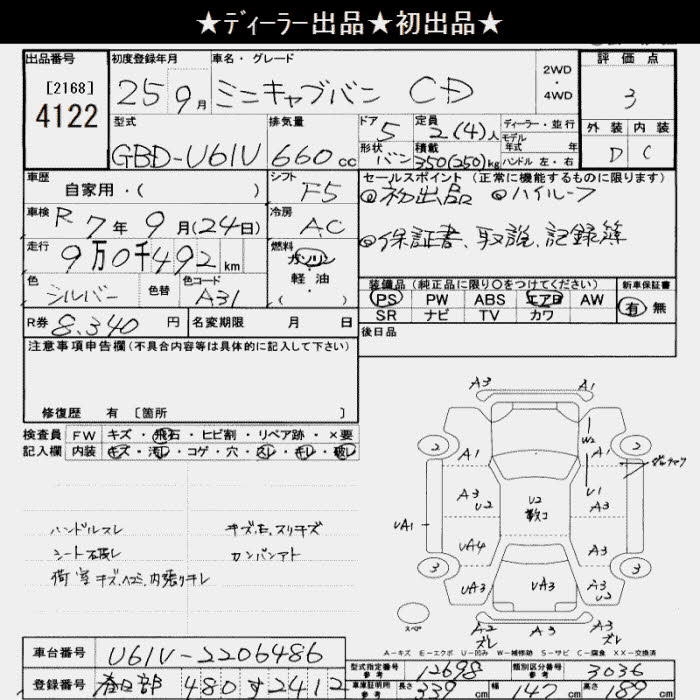 ★ディーラー出品★初出品★
出品番号 初度登録年月 車名・グレード 評価点
[2168]
4122
25 9月 ミニキャブバン CD
2WD
4WD
3
型式 排気量 ドア 定員 ディーラー・並行 外装 内装
GBD-U61V 660cc 5 2(4)人 モデル年式 年
形状 積載 ハンドル 左・右
バン 350(250)kg D C
車歴 シフト セールスポイント (正常に機能するものに限ります)
自家用・( ) F5 ◎初出品 ◎ハイルーフ
車検 R7年9月(24日) 冷房 AC
◎保証書、取説、記録簿
走行 9万0千492km 燃料 ガソリン
軽油
( )
色 シルバー 色替 色コード A31
装備品 (純正品に限り○をつけてください) 新車保証書
PS PW ABS エアB AW 有・無
SR ナビ TV カワ
R券 8,340円 名変期限 月 日
後日品
注意事項申告欄 (不具合内容等は具体的に記入して下さい)
修復歴 有 [箇所 ]
検査員 FW キズ・飛石・ヒビ割・リペア跡・×要
記入欄 内装 キズ・汚レ・コゲ・穴・スレ・キレ・破レ
ハンドルスレ キズ、E、スリキズ
シート破レ カンバンアト
荷室キズ、ヘコミ、内張りキレ
A3 A1
2 2
A1 W2 A1
A3 U2 U2 U1 A3
UA1
UA4 A3
3 3
UA3 UA3 A3 U2
スペア
A2 ズレ A3 A3 ズレ
A-キズ E-エクボ U-凹み W-補修跡 S-サビ C-腐食 XX-交換済
車台番号 U61V-2206486
型式指定番号 参考 12698 類別区分番号 参考 3036
登録番号 春日部 480 す 2412
車庫証明用 参考 長さ 339cm 幅 147cm 高さ cm